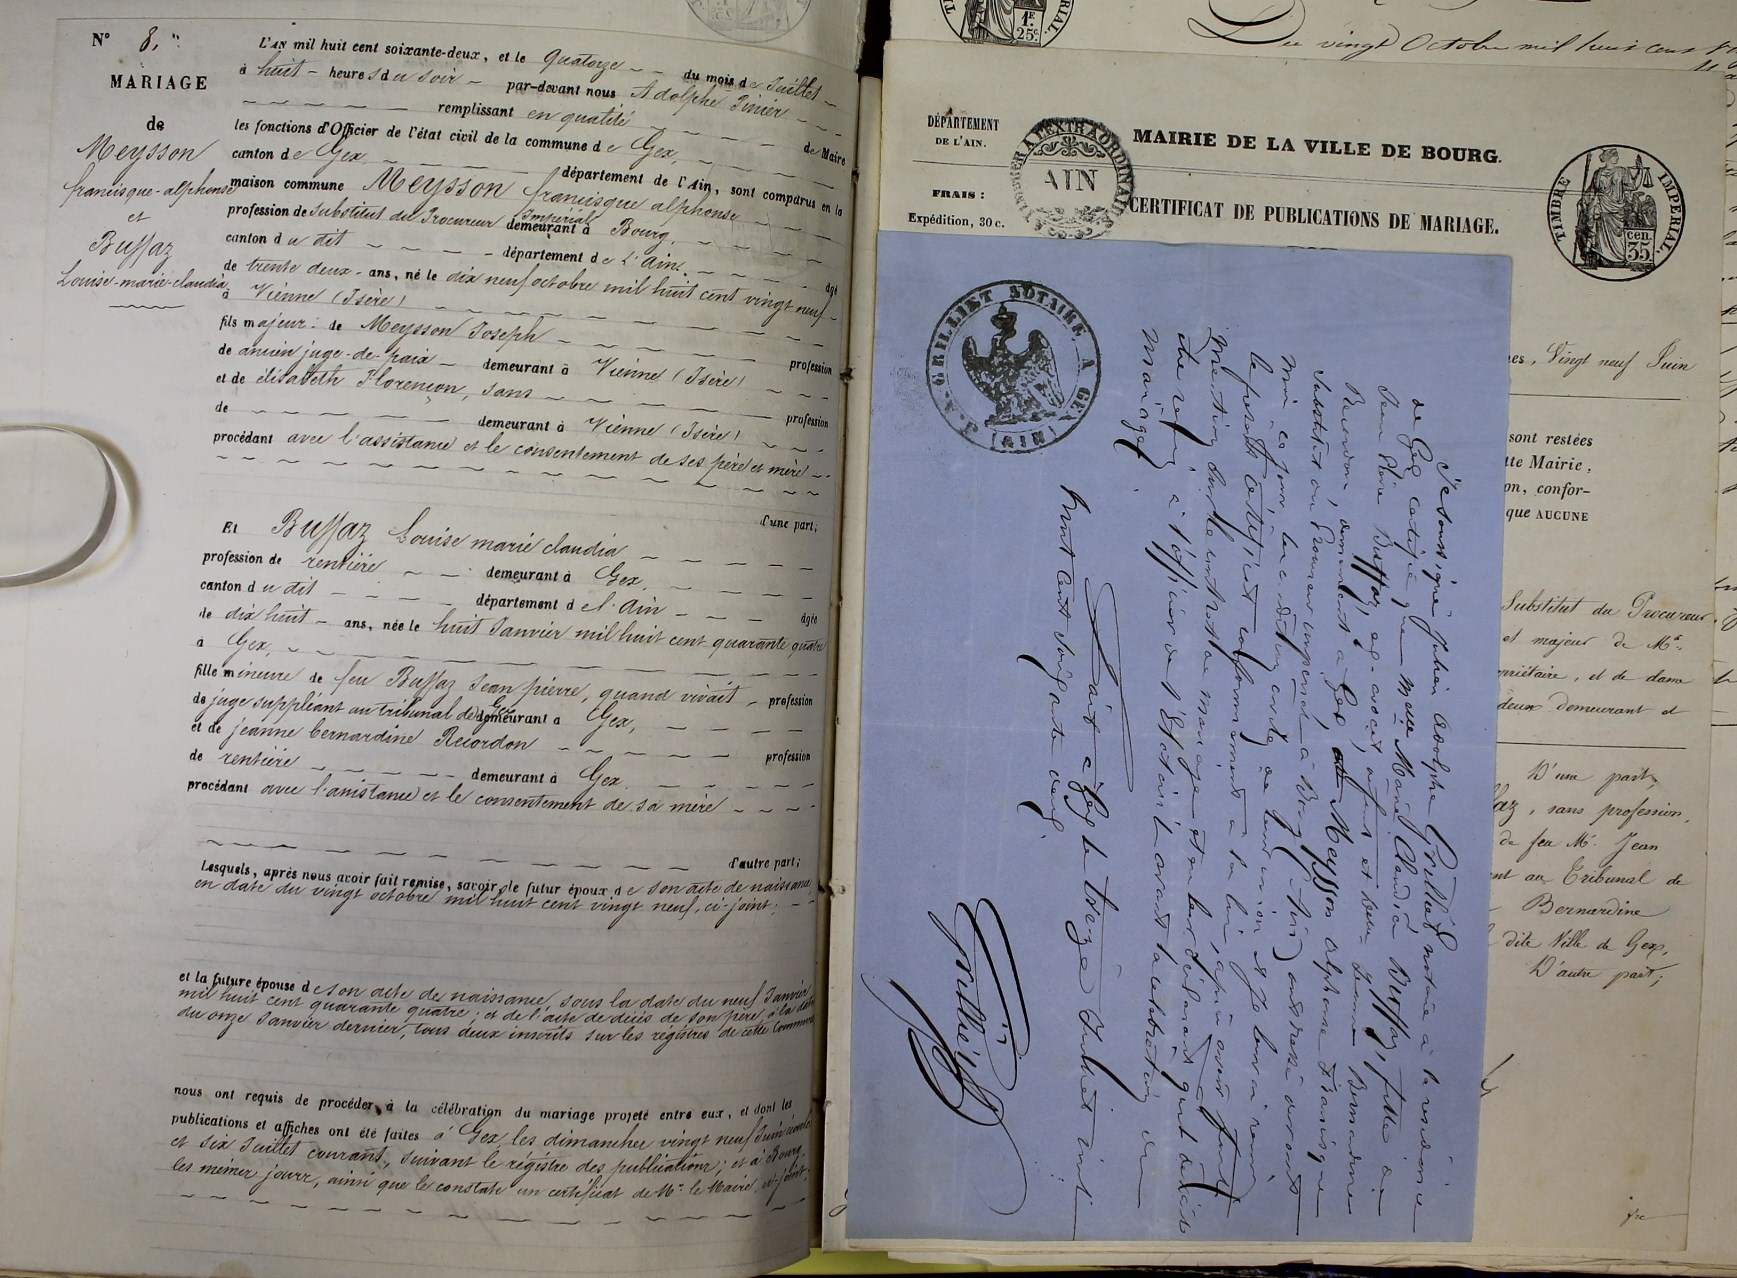 N° 8.
MARIAGE
de
Meysson
francisque-alphonse
et
Buffaz
Louise-marie-claudia
L'AN mil huit cent soixante-deux, et le quatorze du mois de Juillet
à huit heures du soir par-devant nous Adolphe
remplissant en qualité de Maire
les fonctions d'Officier de l'état civil de la commune de Gex,
canton de Gex, département de l'Ain, sont comparus en la
maison commune Meysson francisque alphonse
profession de Substitut du Procureur Impérial demeurant à Bourg,
canton du dit département de l'Ain. âgé
de trente deux ans, né le dix neuf octobre mil huit cent vingt neuf
à Vienne (Isère)
fils majeur de Meysson Joseph profession
de ancien juge-de-paix demeurant à Vienne (Isère)
et de élisabeth Florençon, sans profession
de demeurant à Vienne (Isère)
procédant avec l'assistance et le consentement de ses père et mère
d'une part;
Et Buffaz Louise marie claudia
profession de rentière demeurant à Gex
canton du dit département de l'Ain âgée
de dix huit ans, née le huit Janvier mil huit cent quarante quatre
à Gex,
fille mineure de feu Buffaz Jean pierre, quand vivait profession
de juge suppléant au tribunal de Gex demeurant à Gex,
et de jeanne bernardine Recordon profession
de rentière demeurant à Gex
procédant avec l'assistance et le consentement de sa mère
d'autre part;
Lesquels, après nous avoir fait remise, savoir, le futur époux de son acte de naissance
en date du vingt octobre mil huit cent vingt neuf, ci-joint;
et la future épouse de son acte de naissance, sous la date du neuf Janvier
mil huit cent quarante quatre; et de l'acte de décès de son père, à la date
du onze Janvier dernier, tous deux inscrits sur les régistres de cette Commune
nous ont requis de procéder à la célébration du mariage projeté entre eux, et dont les
publications et affiches ont été faites à Gex les dimanches vingt neuf Juin
et six Juillet courant, suivant le régistre des publications; et à Bourg
les mêmes jours, ainsi que le constate un certificat de Mr. le Maire ci-joint:
1F.
25c.
Du vingt Octobre mil huit cent
DÉPARTEMENT
DE L'AIN.
FRAIS :
Expédition, 30 c.
A L'EXTRAORDINAIRE
AIN
MAIRIE DE LA VILLE DE BOURG.
CERTIFICAT DE PUBLICATIONS DE MARIAGE.
TIMBRE IMPERIAL.
35 cen.
J. A. GRILLIET NOTAIRE A GEX (AIN)
Je soussigné Julien Adolphe Grilliet notaire à la résidence
de Gex certifie que Melle Marie Claudia Buffaz, fille de
Jean Pierre Buffaz, ex-avoué, et de Jeanne Bernardine
Recordon, demeurant à Gex, et Mr Meysson Alphonse Francisque
Substitut du Procureur impérial à Bourg (Ain) ont dressé devant
moi ce jour les conditions civiles de leur union et je leur ai remis
le présent certificat conformément à la loi, après avoir fait
mention sur le contrat de mariage
de le remettre à l'officier de l'Etat civil avant la célébration du
mariage.
Fait à Gex le treize Juillet mil
huit cent soixante deux
Grilliet
Vingt neuf Juin
sont restées
tte Mairie,
on, confor-
que AUCUNE
Substitut du Procureur
et majeur de Mr.
priétaire, et de dame
deux demeurant et
D'une part,
faz, sans profession,
de feu Mr. Jean
nt au Tribunal de
Bernardine
dite Ville de Gex,
D'autre part;